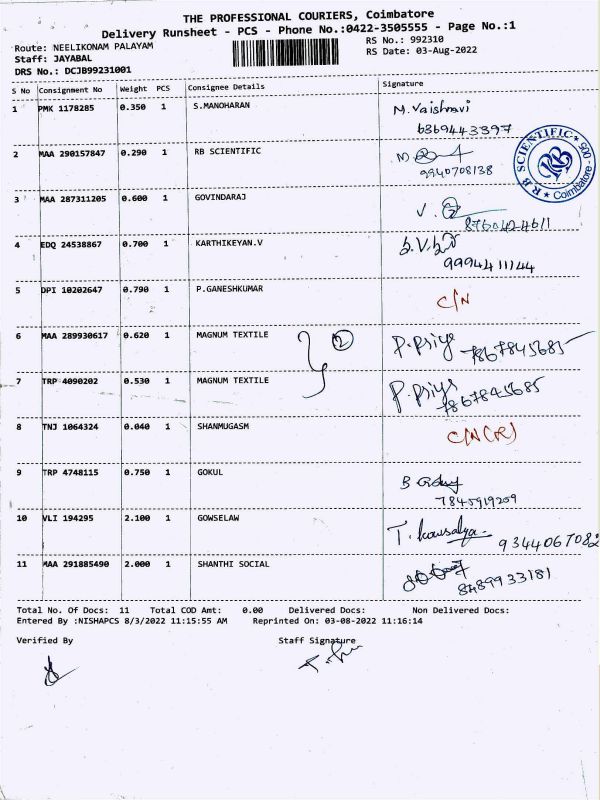 THE PROFESSIONAL COURIERS, Coimbatore
Delivery Runsheet - PCS - Phone No.:0422-3505555 - Page No.:1
Route: NEELIKONAM PALAYAM
RS No.: 992310
Staff: JAYABAL
RS Date: 03-Aug-2022
DRS No.: DCJB99231001
S No Consignment No Weight PCS Consignee Details Signature
1 PMK 1178285 0.350 1 S.MANOHARAN M. Vaishnavi
6369443397
2 MAA 290157847 0.290 1 RB SCIENTIFIC
9940708138
R B SCIENTIFIC ★ Coimbatore - 005 ★
RB
3 MAA 287311205 0.600 1 GOVINDARAJ V.
8760424611
4 EDQ 24538867 0.700 1 KARTHIKEYAN.V
9994411144
5 DPI 10202647 0.790 1 P.GANESHKUMAR C/N
6 MAA 289930617 0.620 1 MAGNUM TEXTILE 2 P. Priya 7867845685
7 TRP 4090202 0.530 1 MAGNUM TEXTILE P. Priya
7867845685
8 TNJ 1064324 0.040 1 SHANMUGASM C/N
9 TRP 4748115 0.750 1 GOKUL B
7845919259
10 VLI 194295 2.100 1 GOWSELAW T. Kowsalya
9344067082
11 MAA 291885490 2.000 1 SHANTHI SOCIAL
8489933181
Total No. Of Docs: 11 Total COD Amt: 0.00 Delivered Docs: Non Delivered Docs:
Entered By :NISHAPCS 8/3/2022 11:15:55 AM Reprinted On: 03-08-2022 11:16:14
Verified By Staff Signature